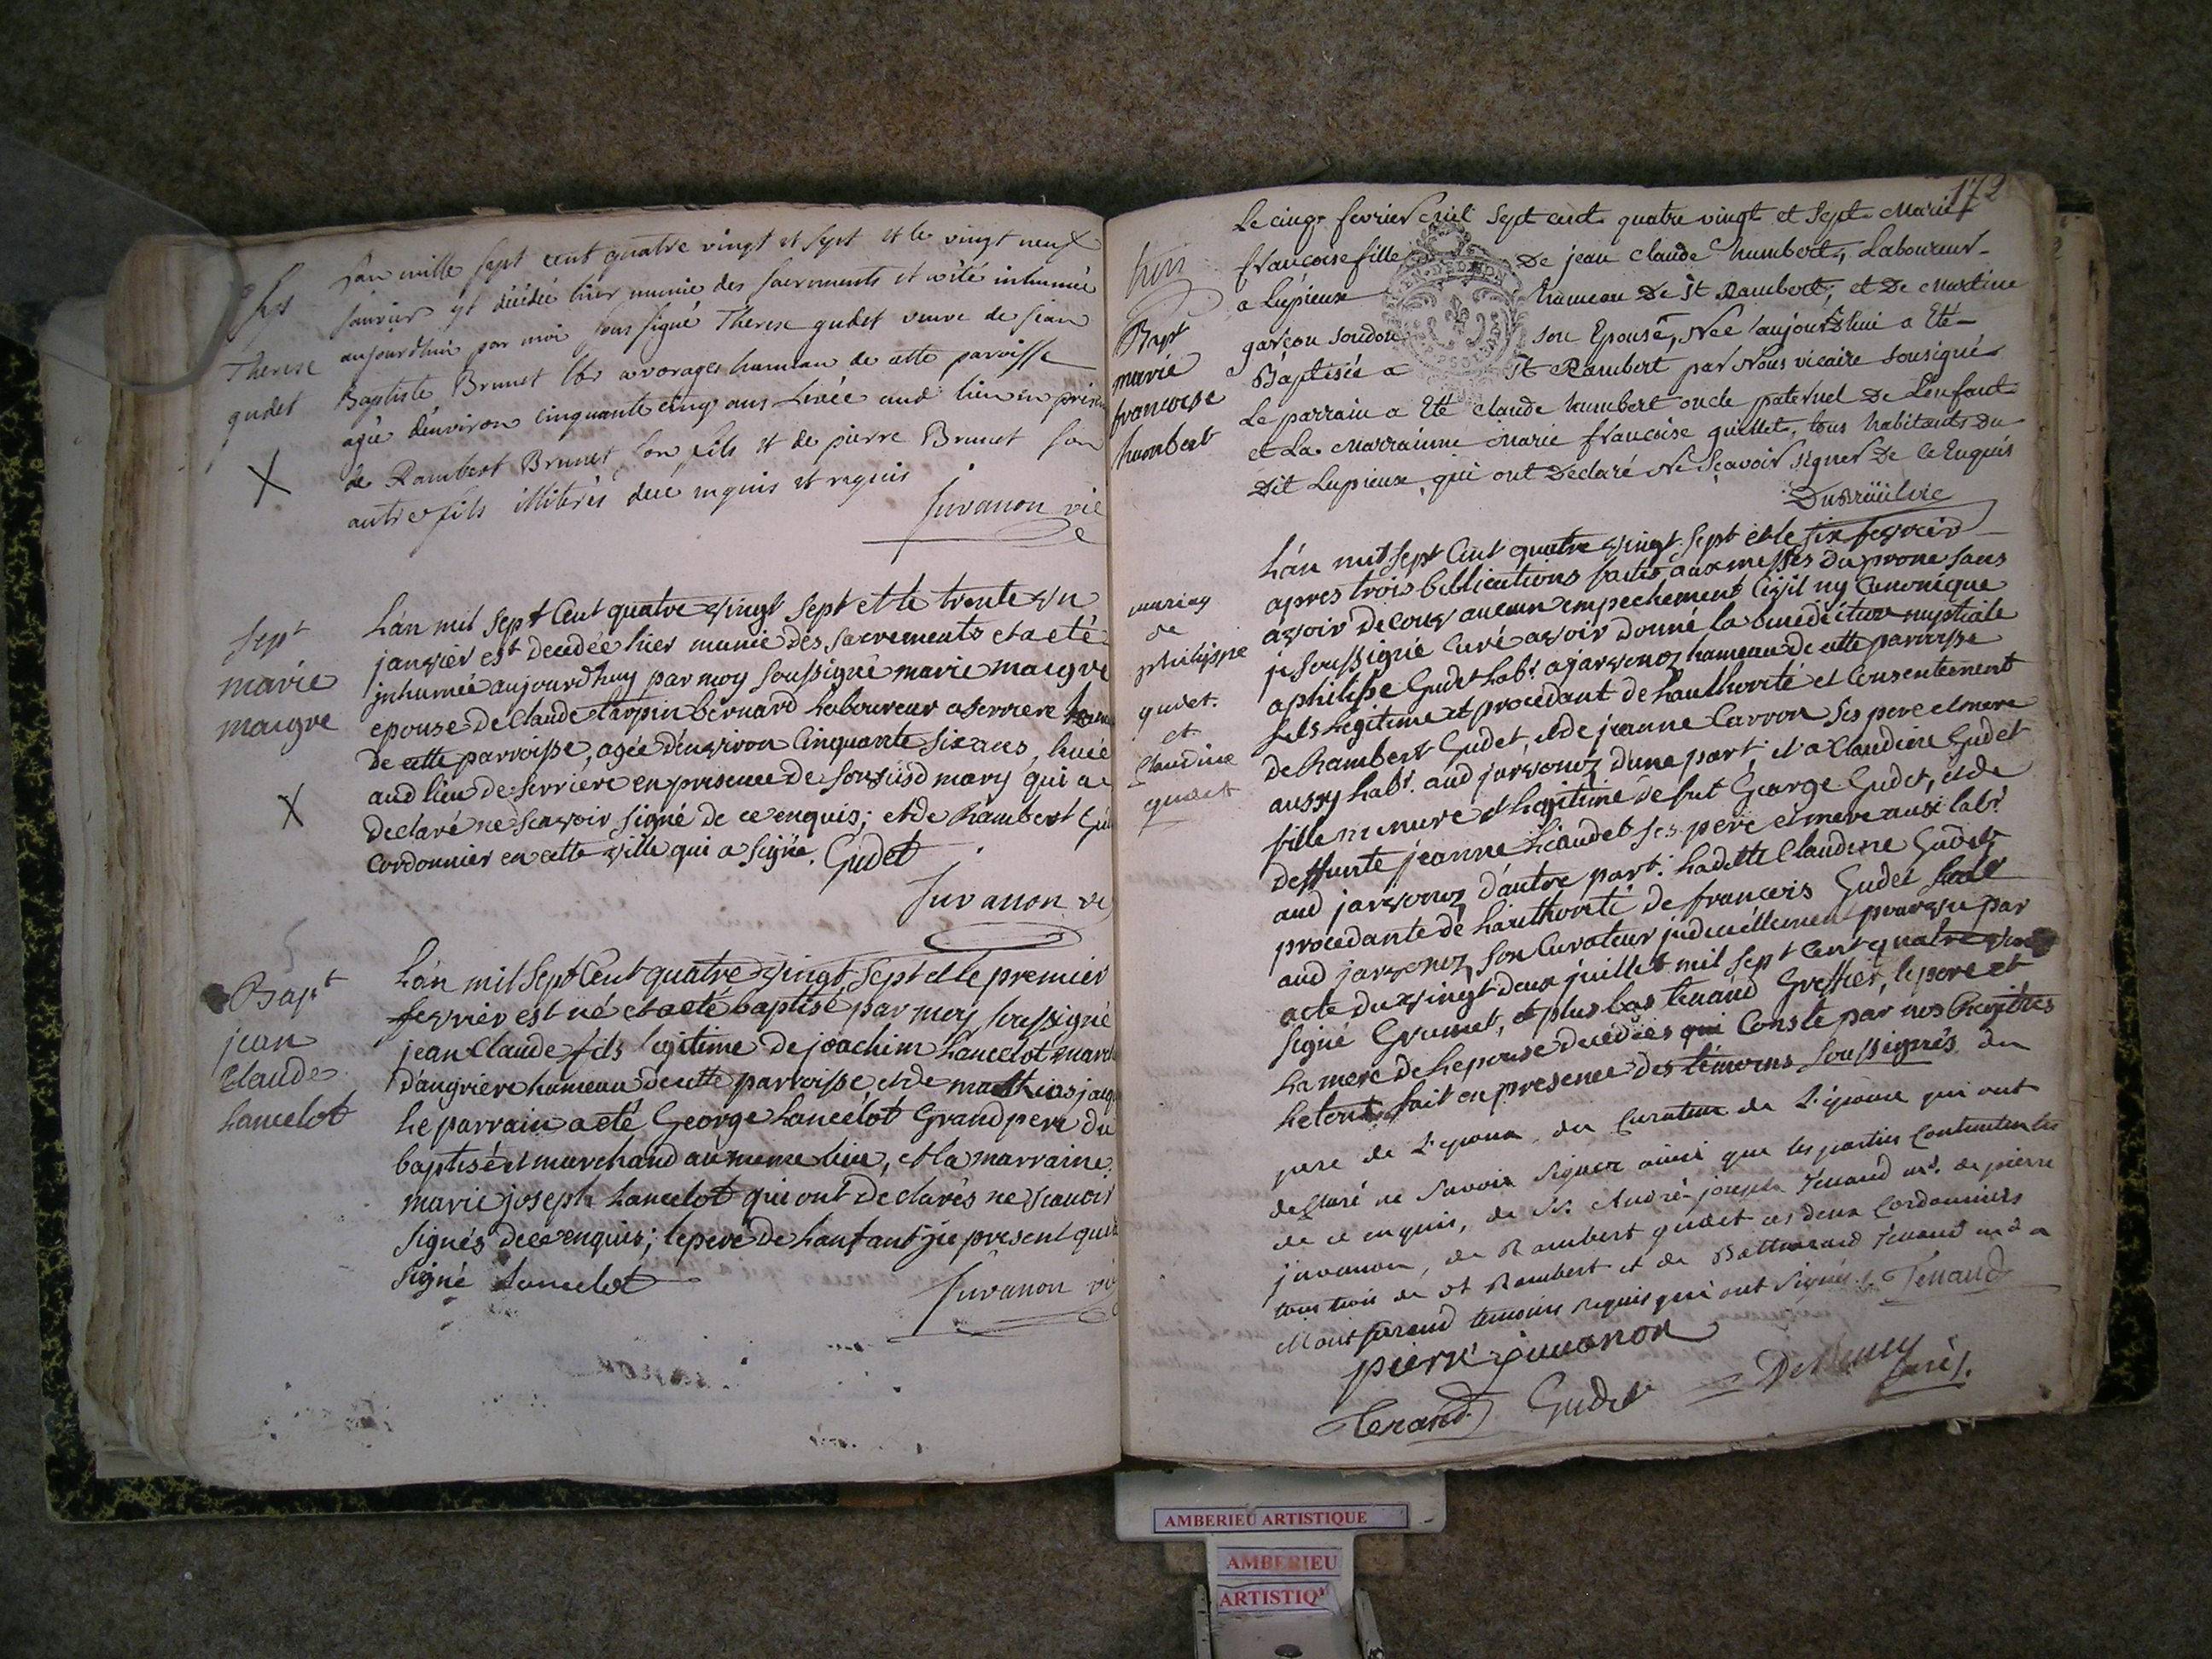 Sep
Therese
gudet
L'an mille sept cent quatre vingt et sept et le vingt neuf
janvier est décédée hier munie des sacrements et a été inhumée
aujourdhui par moi sous signé Therese gudet veuve de jean
Baptiste Brunet lbr a vorages hameau de cette paroisse
agée denviron cinquante cinq ans Livée aud lieu en prese
de Rambert Brunet son fils et de pierre Brunet son
autre fils illiterés de ce enquis et requis
Juvanon vic
Sept
marie
maigre
Lán mil sept Cent quatre vingt sept et le trente un
janvier est decedée hier munie des sacrements et a eté
inhumée aujourdhuy par moy soussigné marie maigre
epouse de Claude Carpin bernard Laboureur a serriere
de cette parroisse, agée d'environ Cinquante six ans, livée
aud lieu de serriere en presence de son susd mary qui a
declaré ne scavoir signé de ce enquis; et de Rambert Gu
Cordonnier en cette ville qui a signé. Gudet
Juvanon vi
Bapt
jean
Claude
Lancelot
Lán mil sept Cent quatre vingt sept et le premier
fevrier est né et a eté baptisé par moy soussigné
jean Claude fils legitime de joachim Lancelot march
d'angriere hameau de cette parroisse et de mathias jacq
Le parrain a eté George Lancelot Grand pere du
baptisé et marchand au meme lieu, et la marraine
marie joseph Lancelot qui ont declarés ne scavoir
signés de ce enquis; le pere de Lanfant jie present qui a
signé Lancelot
Juvanon vi
172
Bapt
marie
francoise
humbert
Le cinq fevrier mil sept cent quatre vingt et sept Marie
francoise fille De jean claude humbert, Laboureur
a Lupieux hameau De St Rambert, et De Martine
garçon Soudon son Epouse, Née aujourdhui a Eté
Baptisée a St Rambert par Nous vicaire sousigné
Le parrain a Eté claude humbert oncle paternel De L'enfant
et La Marrainne Marie francoise guillet, tous habitants du
dit Lupieux, qui ont Declaré Ne Sçavoir signer De ce Enquis
Dubreüil vic
mariag
de
philippe
gudet.
et
Claudine
gudet
Lán mil sept Cent quatre vingt sept et le six fevrier
apres trois bublications faites aux messes du prone sans
avoir decouv aucun empechement Civil ny Canonique
je soussigné Curé avoir donné la benediction nuptiale
a philippe Gudet habt. a jarvonoz hameau de cette parroisse
fils Legitime et procedant de Lauthorité et Consentement
de Rambert Gudet, et de jeanne Carron ses pere et mere
aussy habt. aud jarvonoz dune part, et a Claudine Gudet
fille mineure et Legitime de fut George Gudet, et de
deffunte jeanne Liaudet ses pere et mere aussi labr
aud jarvonoz d'autre part: Ladette Claudine Gudet
procedante de Lauthorité de francois Gudet
aud jarvonoz son Curateur judiciellement pourvu par
acte du vingt deux juillet mil sept Cent quatre vingt
signé Grumet, et plus bas tenand Greffier, le pere et
La mere de Lepouse decedées qui Conste par nos Registres
Le tout fait en presence des témoins soussignés du
pere de L'epoux, du Curateur de L'epouse qui ont
declaré ne savoir signer ainsi que les parties Contractantes
de ce enquis, de Sr. André joseph Tenand md. de pierre
juvanon, de Rambert gudet ces deux Cordonniers
tous trois de St Rambert et de Balthazard Tenand md a
Montferrand temoins requis qui ont signés. Tenand
pierre juvanon
Tenand
Gudet
curé.
AMBERIEU ARTISTIQUE
AMBERIEU
ARTISTIQ